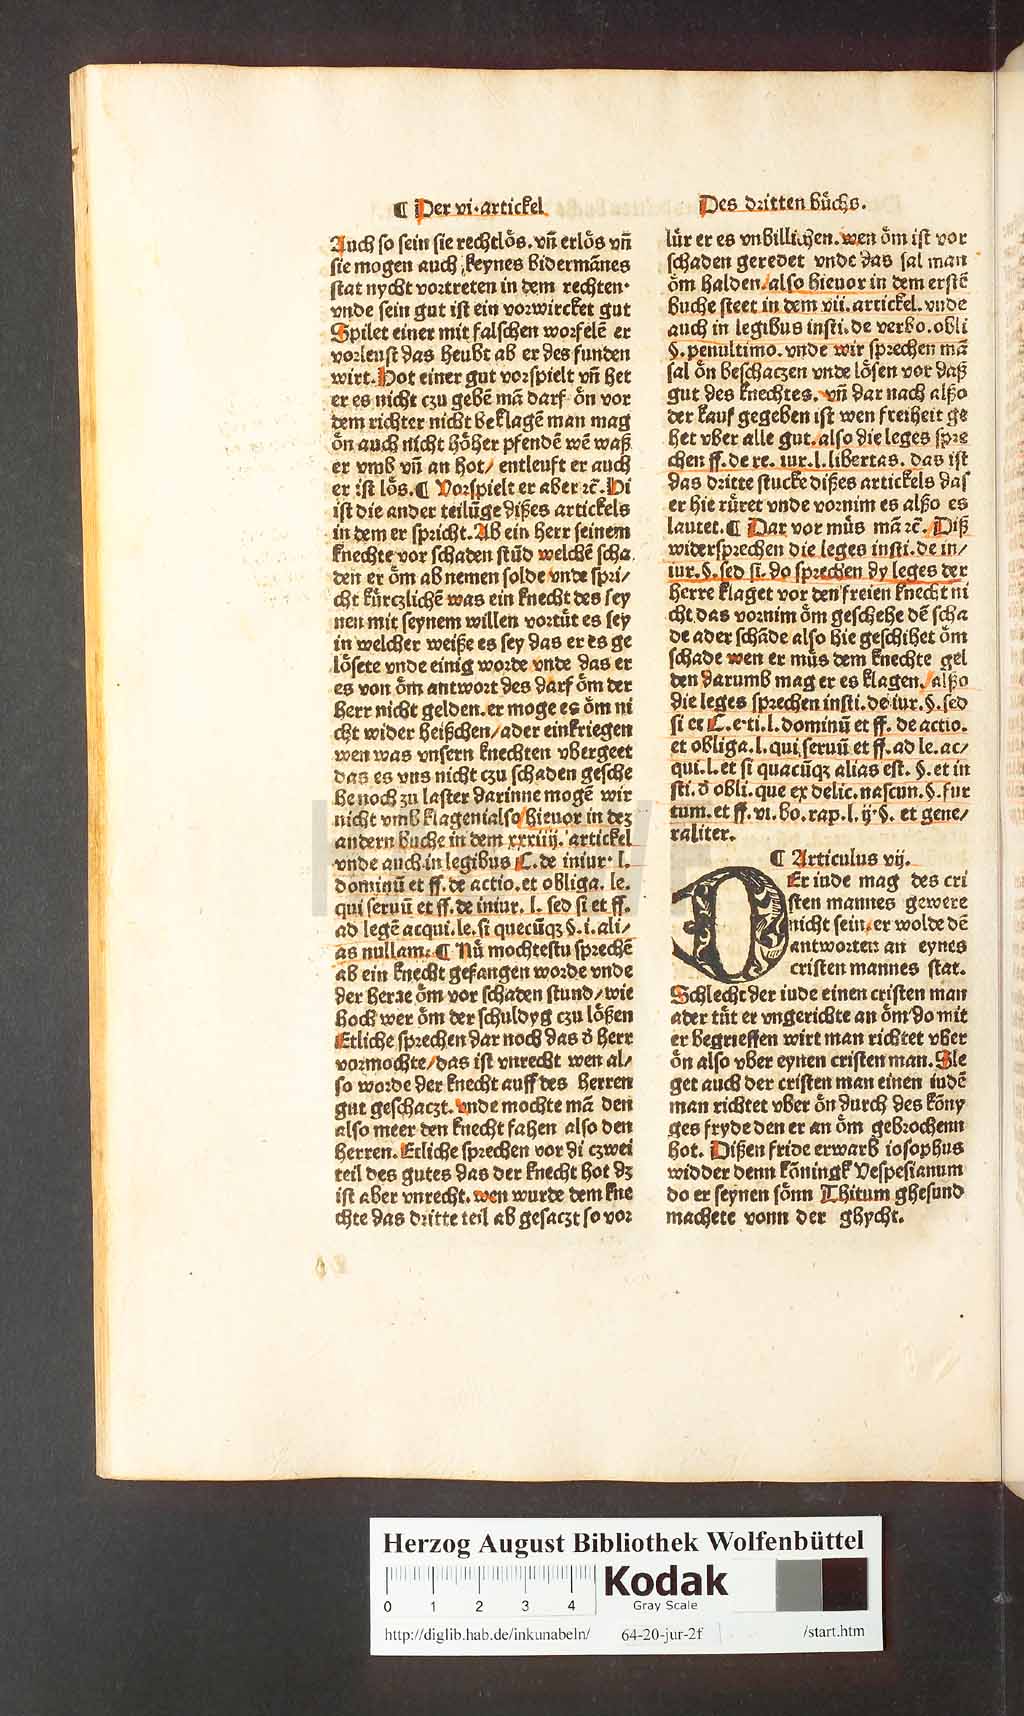 ¶ Der vi. artickel
Des dritten bůchs.
Auch so sein sie rechtlǒs. vñ erlǒs vñ
sie mogen auch keynes bidermãnes
stat nycht vortreten in dem rechten.
vnde sein gut ist ein vorwircket gut
Spilet einer mit falschen worfelẽ er
vorleust das heubt ab er des funden
wirt. Hot einer gut vorspielt vñ het
er es nicht czu gebẽ mã darf ǒn vor
dem richter nicht beklagẽ man mag
ǒn auch nicht hǒher pfendẽ wẽ waß
er vmb vñ an hot/ entleuft er auch
er ist lǒs. ¶ Vorspielt er aber ꝛc̃. Hi
ist die ander teilũge dißes artickels
in dem er spricht. Ab ein herr seinem
knechte vor schaden stũd welchẽ scha
den er ǒm ab nemen solde vnde spri/
cht kůrczlichẽ was ein knecht des sey
nen mit seynem willen vortůt es sey
in welcher weiße es sey das er es ge
lǒsete vnde einig worde vnde das er
es von ǒm antwort des darf ǒm der
herr nicht gelden. er moge es ǒm ni
cht wider heißchen/ ader einkriegen
wen was vnsern knechten vbergeet
das es vns nicht czu schaden gesche
he noch zu laster darinne mogẽ wir
nicht vmb klagen also/ hieuor in deʒ
andern buche in dem xxxiiij. artickel
vnde auch in legibus C. de iniur. l.
dominũ et ff. de actio. et obliga. le.
qui seruũ et ff. de iniur. l. sed si et ff.
ad legẽ acqui. le. si quecũqʒ §. i. ali/
as nullam. ¶ Nů mochtestu sprechẽ
ab ein knecht gefangen worde vnde
der herre ǒm vor schaden stund/ wie
hoch wer ǒm der schuldyg czu lǒßen
Etliche sprechen dar noch das d̕ herr
vormochte/ das ist vnrecht wen al/
so worde der knecht auff des herren
gut geschaczt. vnde mochte mã den
also meer den knecht fahen also den
herren. Etliche sprechen vor di czwei
teil des gutes das der knecht hot dʒ
ist aber vnrecht. wen wurde dem kne
chte das dritte teil ab gesaczt so vor
lůr er es vnbillichen. wen ǒm ist vor
schaden geredet vnde das sal man
ǒm halden/ also hieuor in dem erstẽ
buche steet in dem vii. artickel. vnde
auch in legibus insti. de verbo. obli
§. penultimo. vnde wir sprechen mã
sal ǒn beschaczen vnde lǒsen vor daß
gut des knechtes. vñ dar nach alßo
der kauf gegeben ist wen freiheit ge
het vber alle gut. also die leges spre
chen ff. de re. iur. l. libertas. das ist
das dritte stucke dißes artickels das
er hie růret vnde vornim es alßo es
lautet. ¶ Dar vor můs mã ꝛc̃. Diß
widersprechen die leges insti. de in/
iur. §. sed si. do sprechen dy leges der
herre klaget vor den freien knecht ni
cht das vornim ǒm geschehe dẽ scha
de ader schãde also hie geschihet ǒm
schade wen er můs dem knechte gel
den darumb mag er es klagen/ alßo
die leges sprechen insti. de iur. §. sed
si et C. e. ti. l. dominũ et ff. de actio.
et obliga. l. qui seruũ et ff. ad le. ac/
qui. l. et si quacũqʒ alias est. §. et in
sti. d̕ obli. que ex delic. nascun. §. fur
tum. et ff. vi. bo. rap. l. ij. §. et gene/
raliter.
¶ Articulus vij.
DEr iude mag des cri
sten mannes gewere
nicht sein/ er wolde dẽ
antworten an eynes
cristen mannes stat.
Schlecht der iude einen cristen man
ader tůt er vngerichte an ǒm do mit
er begrieffen wirt man richtet vber
ǒn also vber eynen cristen man. Sle
get auch der cristen man einen iudẽ
man richtet vber ǒn durch des kǒny
ges fryde den er an ǒm gebrochenn
hot. Dißen fride erwarb iosophus
widder denn kǒningk Vespesianum
do er seynen sǒnn Thitum ghesund
machete vonn der ghycht.
Herzog August Bibliothek Wolfenbüttel
0 1 2 3 4
Kodak
Gray Scale
http://diglib.hab.de/inkunabeln/ 64-20-jur-2f /start.htm